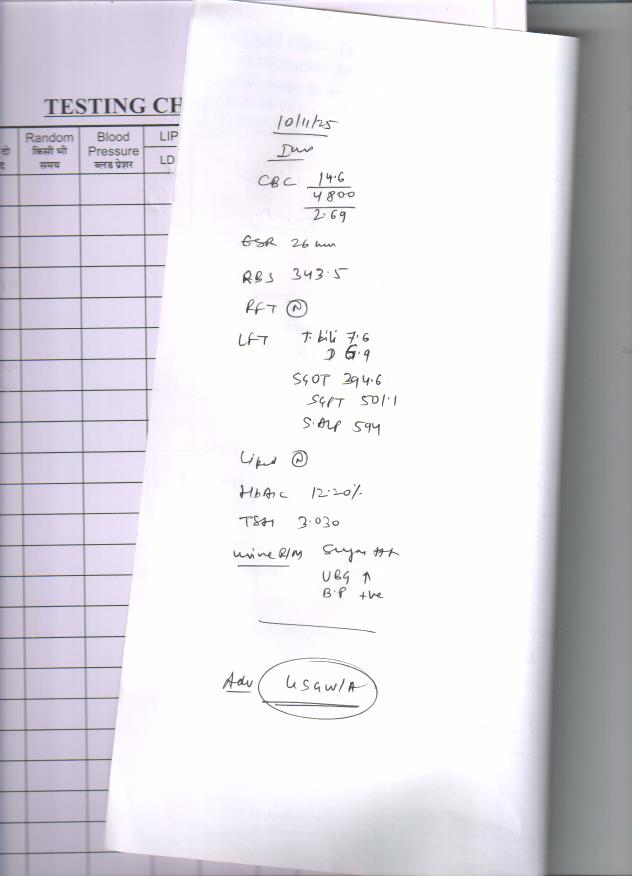 TESTING CH
Random
किसी भी
समय
Blood
Pressure
ब्लड प्रेशर
LIP
LD
दो
10/11/25
Inv
CBC 14.6
4800
2.69
ESR 26 mm
RBS 343.5
RFT (N)
LFT T. bili 7.6
D 6.9
SGOT 394.6
SGPT 501.1
S.ALP 594
Lipid (N)
HbA1c 12.20%
TSH 3.030
Urine R/M Sugar +++
UBG ↑
B.P +ve
Adv USG W/A